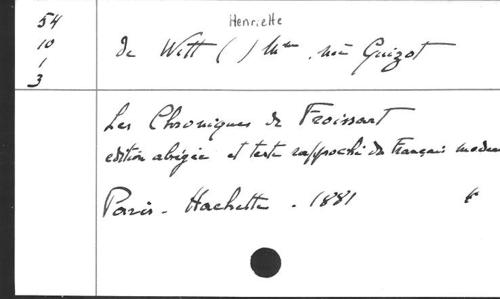 54
10
1
3
Henriette
de Witt ( ) Mme née Guizot
Les Chroniques de Froissart
edition abrégée et texte rapproché du Français moderne
Paris - Hachette - 1881